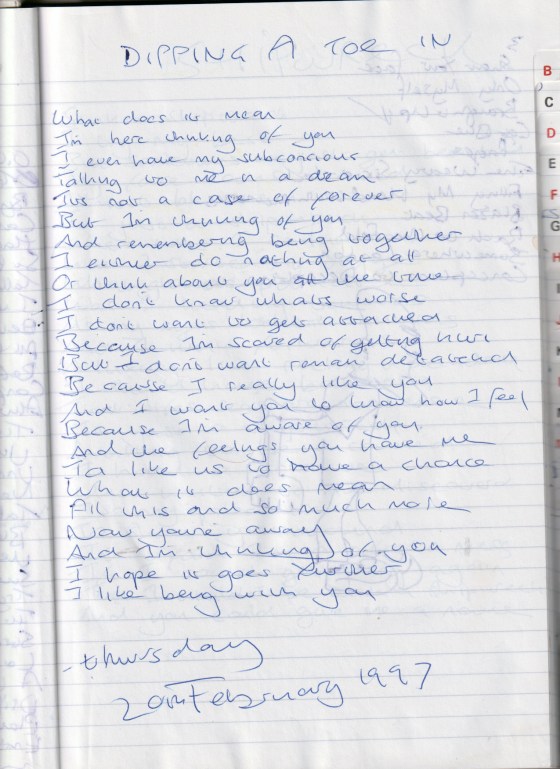 DIPPING A TOE IN
What does it mean
I'm here thinking of you
I even have my subconcious
Talking to me in a dream
Its not a case of forever
But I'm thinking of you
And remembering being together
I either do nothing at all
Or think about you all the time
I don't know whats worse
I don't want to get attached
Because I'm scared of getting hurt
But I don't want remain detatched
Because I really like you
And I want you to know how I feel
Because I'm aware of you
And the feelings you have me
I'd like us to have a chance
What it does mean
All this and so much more
Now you're away
And I'm thinking of you
I hope it goes further
I like being with you
-thursday
20th February 1997
B
C
D
E
F
G
H